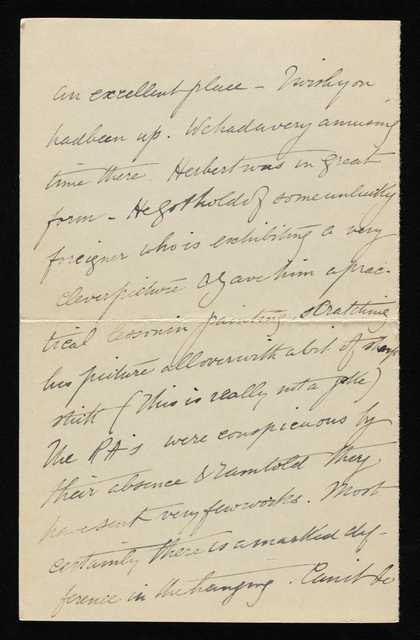 an excellent place – I wish you
had been up. We had a very amusing
time there. Herbert was in great
form – He got hold of some unluckly
foreigner who is exhibiting a very
clever picture & gave him a prac-
tical lesson in painting scratching
his picture all over with a bit of sharp
stick (this is really not a joke)
The RA's were conspicuous by
their absence & I am told they
have sent very few works. Most
certainly there is a marked dif-
ference in the hanging. Can it be